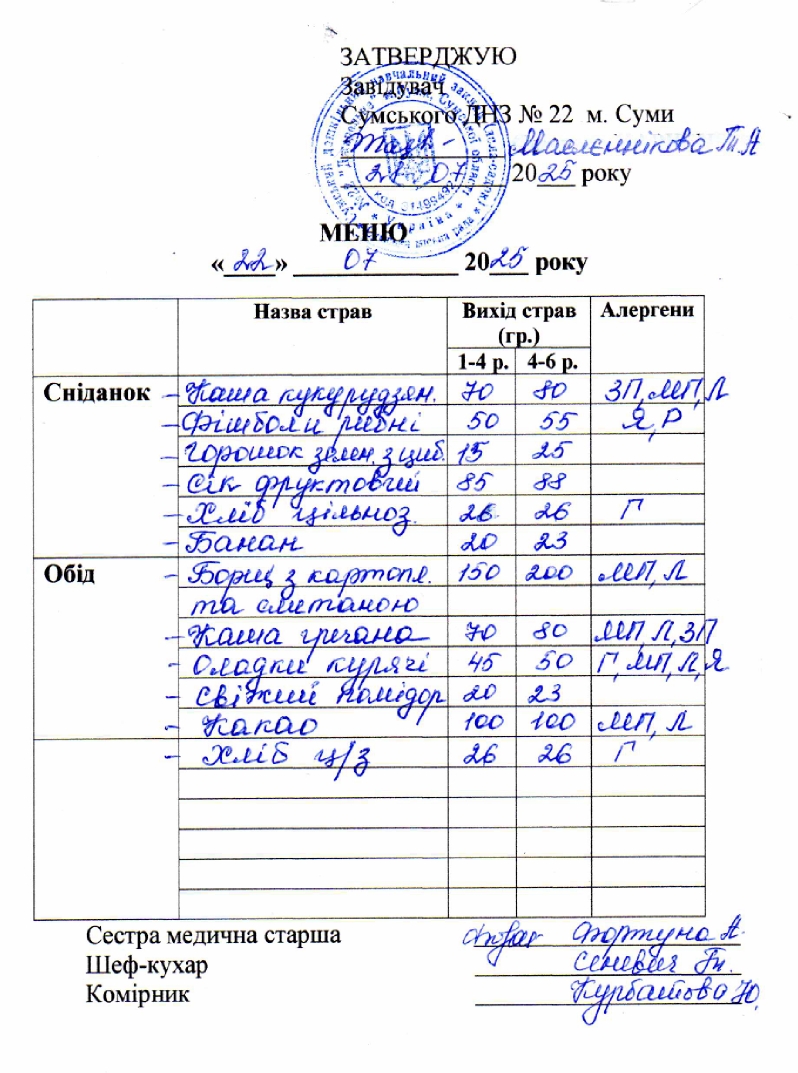 ЗАТВЕРДЖУЮ
Завідувач
Сумського ДНЗ № 22 м. Суми
Маслєннікова Т А
21 07 2025 року
МЕНЮ
«22» 07 2025 року
Назва страв Вихід страв (гр.) Алергени
1-4 р. 4-6 р.
Сніданок – Каша кукурудзян. 70 80 ЗП, МП, Л
– Фішболи рибні 50 55 Я, Р
– Горошок зелен. з циб. 15 25
– Сік фруктовий 85 88
– Хліб цільноз. 26 26 Г
– Банан 20 23
Обід – Борщ з картопл. 150 200 МП, Л
та сметаною
– Каша гречана 70 80 МП, Л, ЗП
– Оладки курячі 45 50 Г, МП, Л, Я
– Свіжий помідор 20 23
– Какао 100 100 МП, Л
– Хліб ц/з 26 26 Г
Сестра медична старша Фортуна А.
Шеф-кухар Сеневич
Комірник Курбатова Ю.